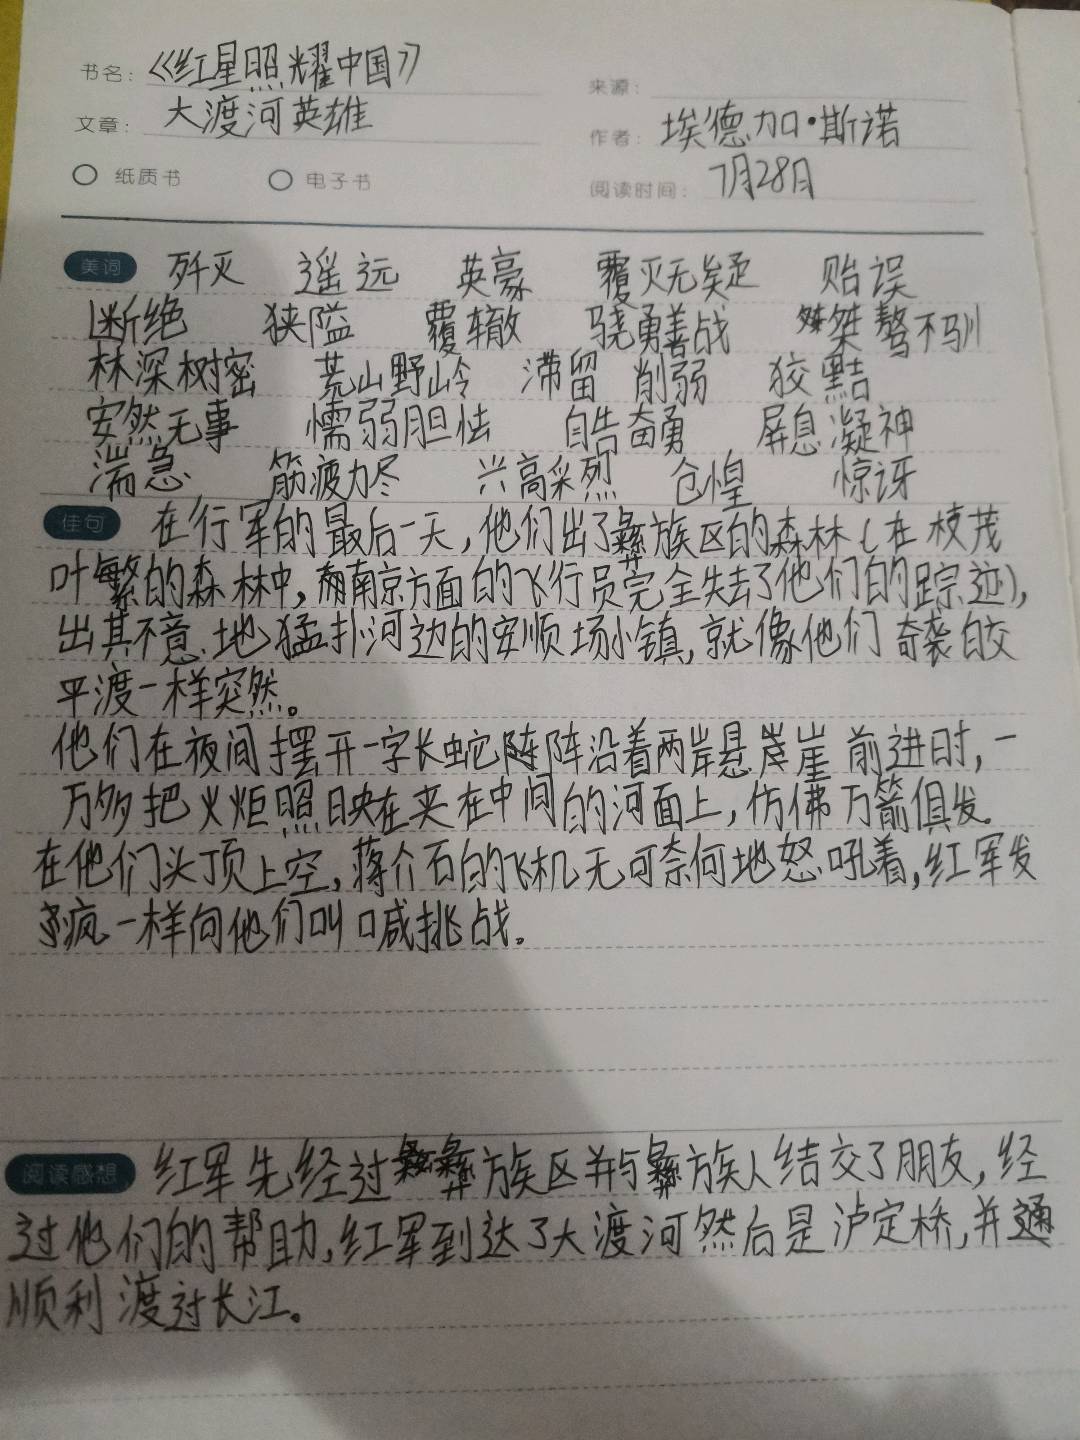 书名：《红星照耀中国》
来源：
文章：大渡河英雄
作者：埃德加·斯诺
纸质书 电子书
阅读时间：7月28日
美词 歼灭 遥远 英豪 覆灭无疑 贻误
断绝 狭隘 覆辙 骁勇善战 桀骜不驯
林深树密 荒山野岭 滞留 削弱 狡黠
安然无事 懦弱胆怯 自告奋勇 屏息凝神
湍急 筋疲力尽 兴高采烈 仓惶 惊讶
佳句 在行军的最后一天，他们出了彝族区的森林（在枝茂
叶繁的森林中，南京方面的飞行员完全失去了他们的踪迹），
出其不意地猛扑河边的安顺场小镇，就像他们奇袭皎
平渡一样突然。
他们在夜间摆开一字长蛇阵沿着两岸悬崖前进时，一
万多把火炬照映在夹在中间的河面上，仿佛万箭俱发。
在他们头顶上空，蒋介石的飞机无可奈何地怒吼着，红军发
疯一样向他们叫喊挑战。
阅读感想 红军先经过彝族区并与彝族人结交了朋友，经
过他们的帮助，红军到达了大渡河然后是泸定桥，并
顺利渡过长江。